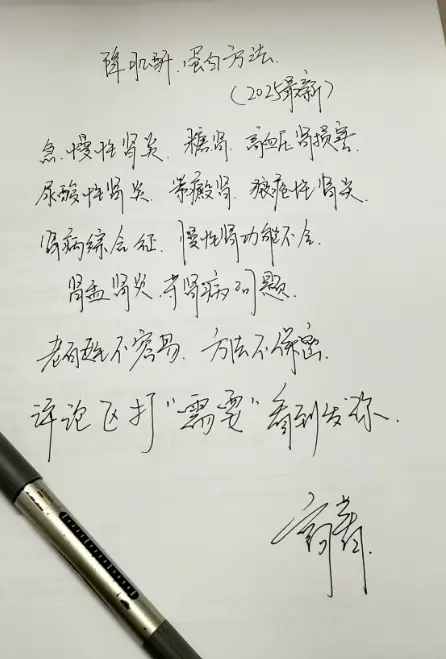 降肌酐.蛋白方法.
(2025最新)
急.慢性肾炎.糖肾.高血压肾损害.
尿酸性肾炎.紫癜肾.狼疮性肾炎.
肾病综合征.慢性肾功能不全.
肾盂肾炎.等肾病问题.
老百姓不容易.方法不保密.
评论区打“需要”看到发你.